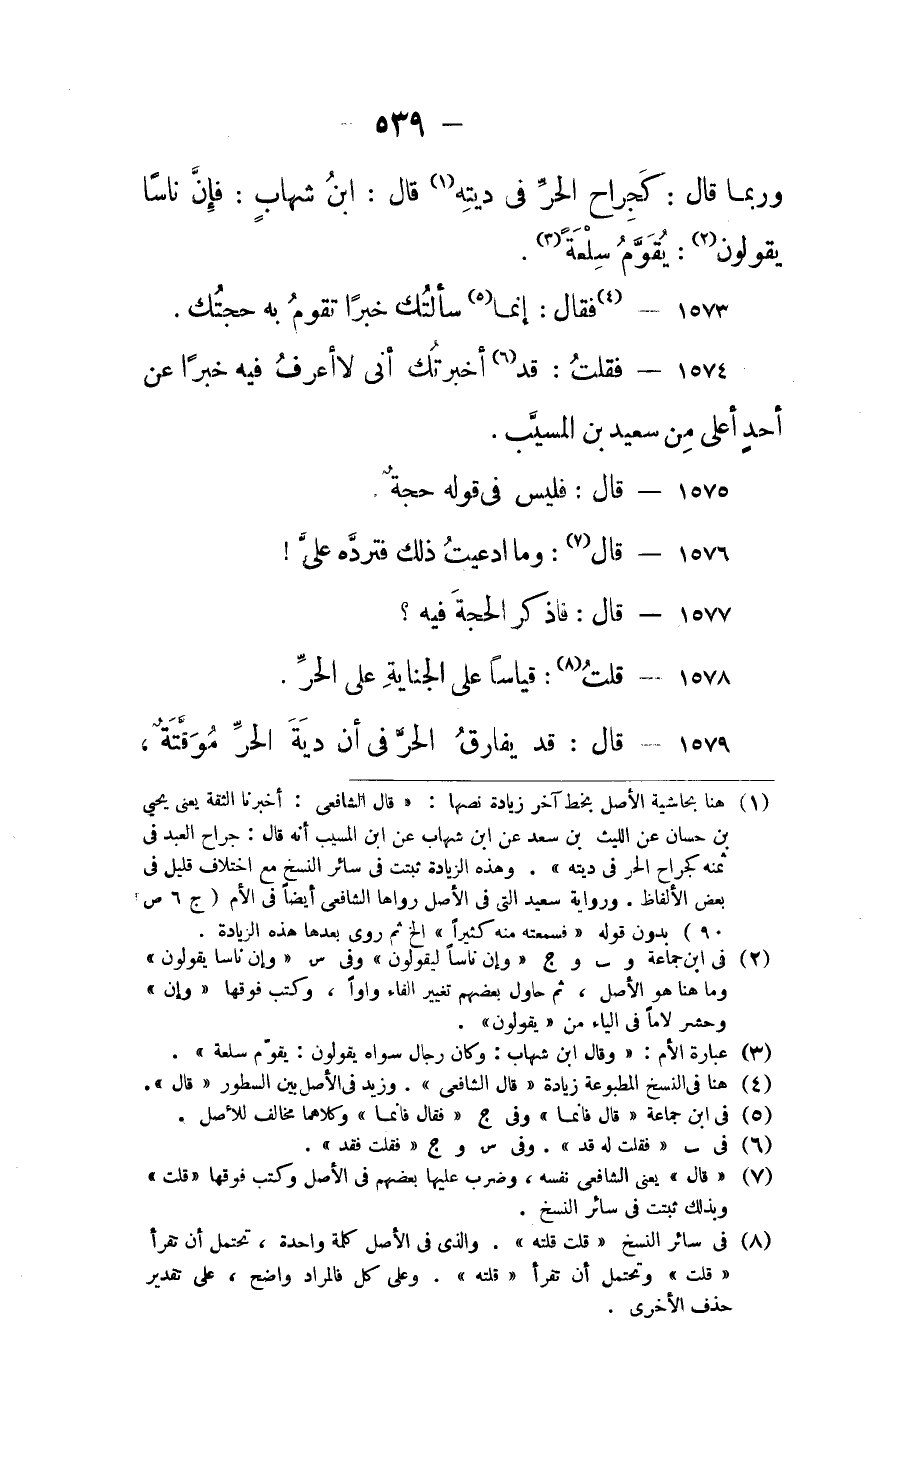 — ٥٣٩ —
وربما قال : كَجِراح الحرِّ فى ديتِه(١) قال : ابنُ شهابٍ : فإنَّ ناسًا
يقولون(٢) : يُقَوَّمُ سِلْعَةً(٣) .
١٥٧٣ — (٤)فقال : إنما(٥) سألتُك خبرًا تقومُ به حجتُك .
١٥٧٤ — فقلتُ : قد(٦) أخبرتُك أنى لا أعرفُ فيه خبرًا عن
أحدٍ أعلى مِن سعيد بن المسيَّب .
١٥٧٥ — قال : فليس فى قوله حجةٌ .
١٥٧٦ — قال(٧) : وما ادعيتُ ذلك فتردَّه علىَّ !
١٥٧٧ — قال : فاذكر الحجةَ فيه ؟
١٥٧٨ — قلتُ(٨) : قياساً على الجنايةِ على الحرِّ .
١٥٧٩ — قال : قد يفارقُ الحرَّ فى أن ديَةَ الحرِّ مُوَقَّتَةٌ ،
(١) هنا بحاشية الأصل بخط آخر زيادة نصها : « قال الشافعى : أخبرنا الثقة يعنى يحيى
بن حسان عن الليث بن سعد عن ابن شهاب عن ابن المسيب أنه قال : جراح العبد فى
ثمنه كجراح الحر فى ديته » . وهذه الزيادة ثبتت فى سائر النسخ مع اختلاف قليل فى
بعض الألفاظ . ورواية سعيد التى فى الأصل رواها الشافعى أيضاً فى الأم ( ج ٦ ص
٩٠ ) بدون قوله « فسمعته منه كثيراً » الخ ثم روى بعدها هذه الزيادة .
(٢) فى ابن جماعة و ب و ج « وإن ناساً ليقولون » وفى س « وإن ناسا يقولون »
وما هنا هو الأصل ، ثم حاول بعضهم تغيير الفاء واواً ، وكتب فوقها « وإن »
وحشر لاماً فى الياء من « يقولون » .
(٣) عبارة الأم : « وقال ابن شهاب : وكان رجال سواه يقولون : يقوّم سلعة » .
(٤) هنا فى النسخ المطبوعة زيادة « قال الشافعى » . وزيد فى الأصل بين السطور « قال » .
(٥) فى ابن جماعة « قال فانما » وفى ج « فقال فانما » وكلاهما مخالف للأصل .
(٦) فى ب « فقلت له قد » . وفى س و ج « فقلت فقد » .
(٧) « قال » يعنى الشافعى نفسه ، وضرب عليها بعضهم فى الأصل وكتب فوقها « قلت »
وبذلك ثبتت فى سائر النسخ .
(٨) فى سائر النسخ « قلت قلته » . والذى فى الأصل كلمة واحدة ، تحتمل أن تقرأ
« قلت » وتحتمل أن تقرأ « قلته » . وعلى كل فالمراد واضح ، على تقدير
حذف الأخرى .